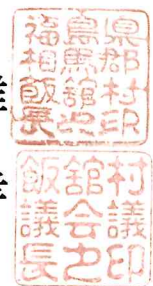 福島県
相馬郡
飯舘村
長之印
飯舘村
議会議
長之印